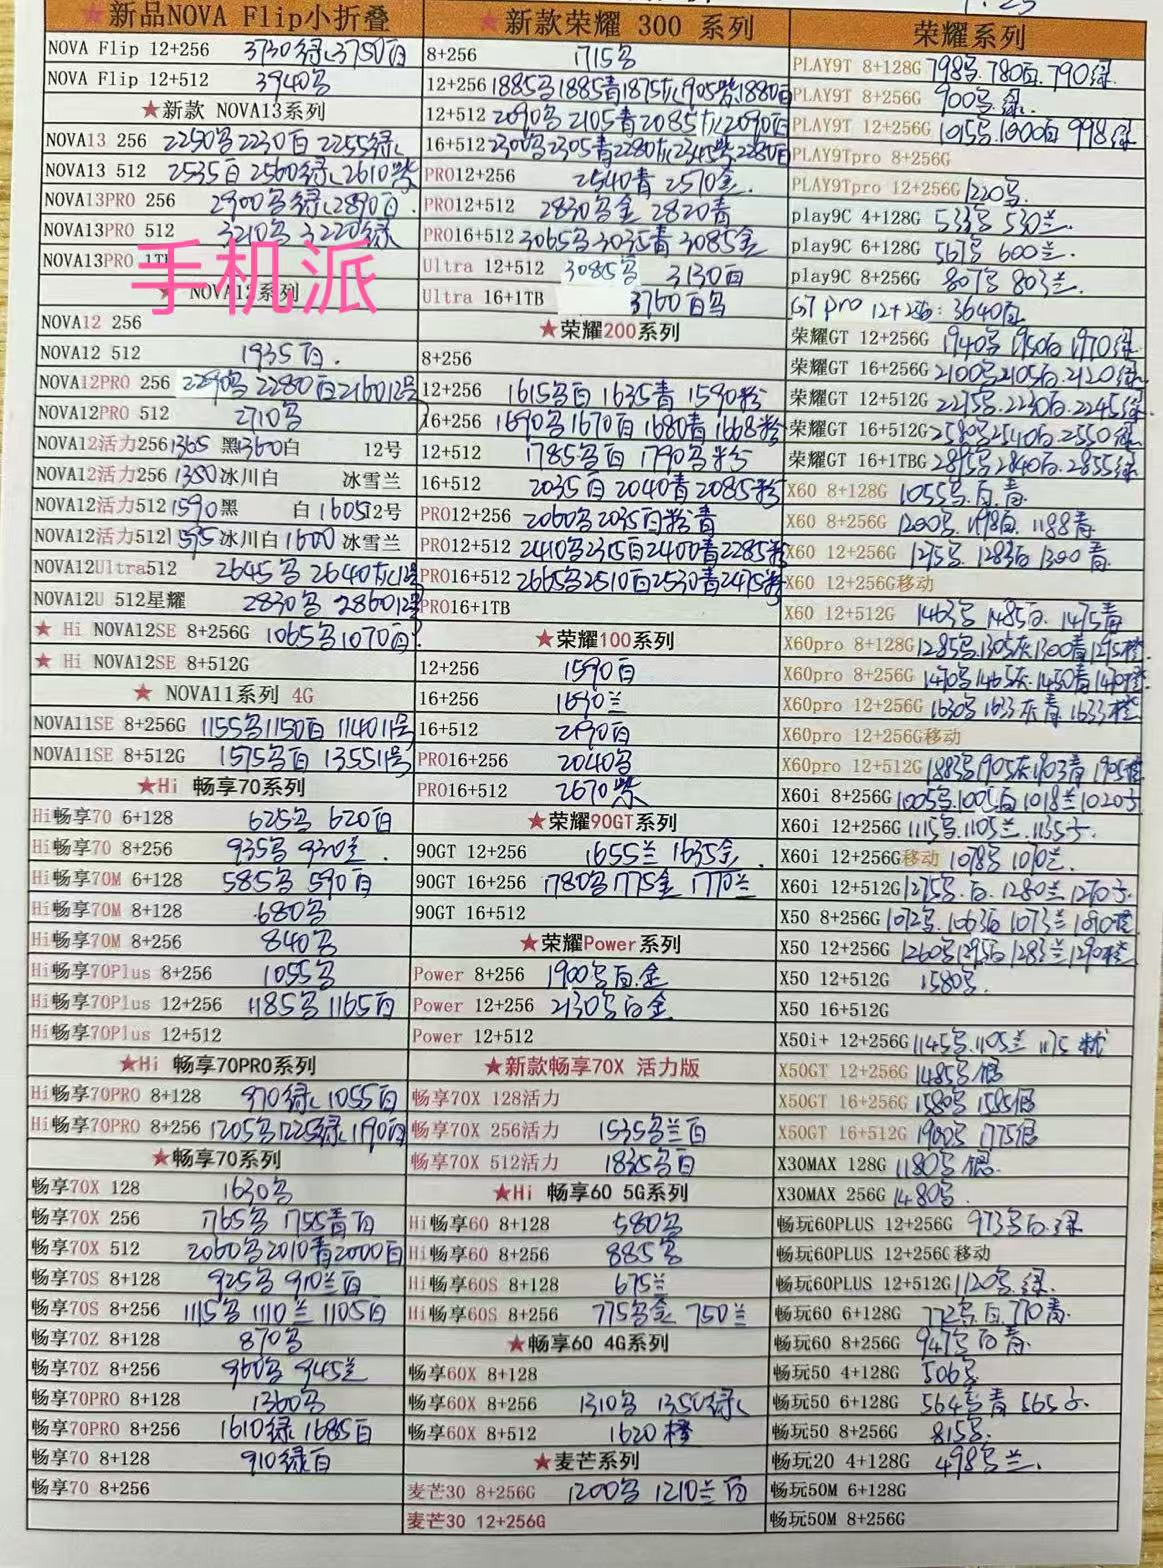 ★新品NOVA Flip小折叠
NOVA Flip 12+256 3730绿 3750白
NOVA Flip 12+512 3940乌
★新款 NOVA13系列
NOVA13 256 2250乌 2230白 2255绿
NOVA13 512 2535白 2560绿 2610紫
NOVA13PRO 256 2900乌绿 2890白
NOVA13PRO 512 3210乌 3220绿
NOVA13PRO 1TB
手机派
★ NOVA12系列
NOVA12 256
NOVA12 512 1935白
NOVA12PRO 256 2290乌 2280白 2160 12号
NOVA12PRO 512 2710乌
NOVA12活力256 1365 黑 1360白 12号
NOVA12活力256 1350 冰川白 冰雪兰
NOVA12活力512 1590 黑 白 1605 12号
NOVA12活力512 1595 冰川白 1600 冰雪兰
NOVA12Ultra512 2645乌 2640灰 12号
NOVA12U 512星耀 2830乌 2860 12号
★ Hi NOVA12SE 8+256G 1065乌 1070白
★ Hi NOVA12SE 8+512G
★ NOVA11系列 4G
NOVA11SE 8+256G 1155乌 1150白 1140 11号
NOVA11SE 8+512G 1575乌白 1355 11号
★Hi 畅享70系列
Hi畅享70 6+128 625乌 620白
Hi畅享70 8+256 935乌 930兰
Hi畅享70M 6+128 585乌 590白
Hi畅享70M 8+128 680乌
Hi畅享70M 8+256 840乌
Hi畅享70Plus 8+256 1055乌
Hi畅享70Plus 12+256 1185乌 1165白
Hi畅享70Plus 12+512
★Hi 畅享70PRO系列
Hi畅享70PRO 8+128 970绿 1055白
Hi畅享70PRO 8+256 1205乌 1225绿 1190白
★畅享70系列
畅享70X 128 1630乌
畅享70X 256 1765乌 1755青白
畅享70X 512 2060乌 2010青 2000白
畅享70S 8+128 925乌 910兰白
畅享70S 8+256 1115乌 1110兰 1105白
畅享70Z 8+128 870乌
畅享70Z 8+256 960乌 945兰
畅享70PRO 8+128 1360乌
畅享70PRO 8+256 1610绿 1685白
畅享70 8+128 910绿白
畅享70 8+256
★新款荣耀 300 系列
8+256 1715乌
12+256 1885乌 1885青 1875灰 1905紫 1880白
12+512 2090乌 2105青 2085灰 2090白
16+512 2300乌 2305青 2280灰 2345紫 2280白
PRO12+256 2540青 2570金
PRO12+512 2830乌金 2820青
PRO16+512 3065乌 3035青 3085金
Ultra 12+512 3085乌 3130白
Ultra 16+1TB 3760白乌
★荣耀200系列
8+256
12+256 1615乌白 1635青 1590粉
16+256 1690乌 1670白 1680青 1668粉
12+512 1785乌白 1790乌粉
16+512 2035白 2040青 2085粉
PRO12+256 2060乌 2035白粉青
PRO12+512 2410乌 2315白 2400青 2285粉
PRO16+512 2665乌 2510白 2530青 2475粉
PRO16+1TB
★荣耀100系列
12+256 1590白
16+256 1690兰
16+512 2190白
PRO16+256 2040乌
PRO16+512 2670紫
★荣耀90GT系列
90GT 12+256 1655兰 1635金
90GT 16+256 1780乌 1775金 1770兰
90GT 16+512
★荣耀Power系列
Power 8+256 1900乌白金
Power 12+256 2130乌白金
Power 12+512
★新款畅享70X 活力版
畅享70X 128活力
畅享70X 256活力 1535乌兰白
畅享70X 512活力 1835乌白
★Hi 畅享60 5G系列
Hi畅享60 8+128 580乌
Hi畅享60 8+256 885乌
Hi畅享60S 8+128 675兰
Hi畅享60S 8+256 775乌金 750兰
★畅享60 4G系列
畅享60X 8+128
畅享60X 8+256 1310乌 1350绿
畅享60X 8+512 1620橙
★麦芒系列
麦芒30 8+256G 1200乌 1210兰白
麦芒30 12+256G
荣耀系列
PLAY9T 8+128G 798乌 780白 790绿
PLAY9T 8+256G 900乌绿
PLAY9T 12+256G 1015乌 1000白 998绿
PLAY9Tpro 8+256G
PLAY9Tpro 12+256G 1220乌
play9C 4+128G 533乌 530兰
play9C 6+128G 567乌 600兰
play9C 8+256G 807乌 803兰
GT pro 12+256: 3640白
荣耀GT 12+256G 1940乌 1950白 1970绿
荣耀GT 16+256G 2100乌 2105白 2120绿
荣耀GT 12+512G 2275乌 2230白 2245绿
荣耀GT 16+512G 2580乌 2540白 2550绿
荣耀GT 16+1TBG 2895乌 2840白 2855绿
X60 8+128G 1055乌白青
X60 8+256G 1200乌 1198白 1188青
X60 12+256G 1275乌 1283白 1300青
X60 12+256G移动
X60 12+512G 1463乌 1485白 1475青
X60pro 8+128G 1285乌 1305灰 1300青 1295橙
X60pro 8+256G 1470乌 1465灰 1450青 1490橙
X60pro 12+256G 1630乌 1633灰青 1633橙
X60pro 12+256G移动
X60pro 12+512G 1883乌 1905灰 1903青 1905橙
X60i 8+256G 1005乌 1005白 1018兰 1020子
X60i 12+256G 1115乌 1105兰 1135子
X60i 12+256G移动 1078乌 1090兰
X60i 12+512G 1275乌白 1280兰 1290子
X50 8+256G 1072乌 1063白 1073兰 1090橙
X50 12+256G 1260乌 1295白 1283兰 1290橙
X50 12+512G 1580乌
X50 16+512G
X50i+ 12+256G 1145乌 1105兰 1175
X50GT 12+256G 1485乌银
X50GT 16+256G 1580乌 1585银
X50GT 16+512G 1900乌 1775银
X30MAX 128G 1180乌银
X30MAX 256G 1480乌
畅玩60PLUS 12+256G 973乌白绿
畅玩60PLUS 12+256G移动
畅玩60PLUS 12+512G 1120乌绿
畅玩60 6+128G 772乌白 770青
畅玩60 8+256G 947乌白青
畅玩50 4+128G 506乌
畅玩50 6+128G 564乌青 565子
畅玩50 8+256G 815乌
畅玩20 4+128G 498乌兰
畅玩50M 6+128G
畅玩50M 8+256G